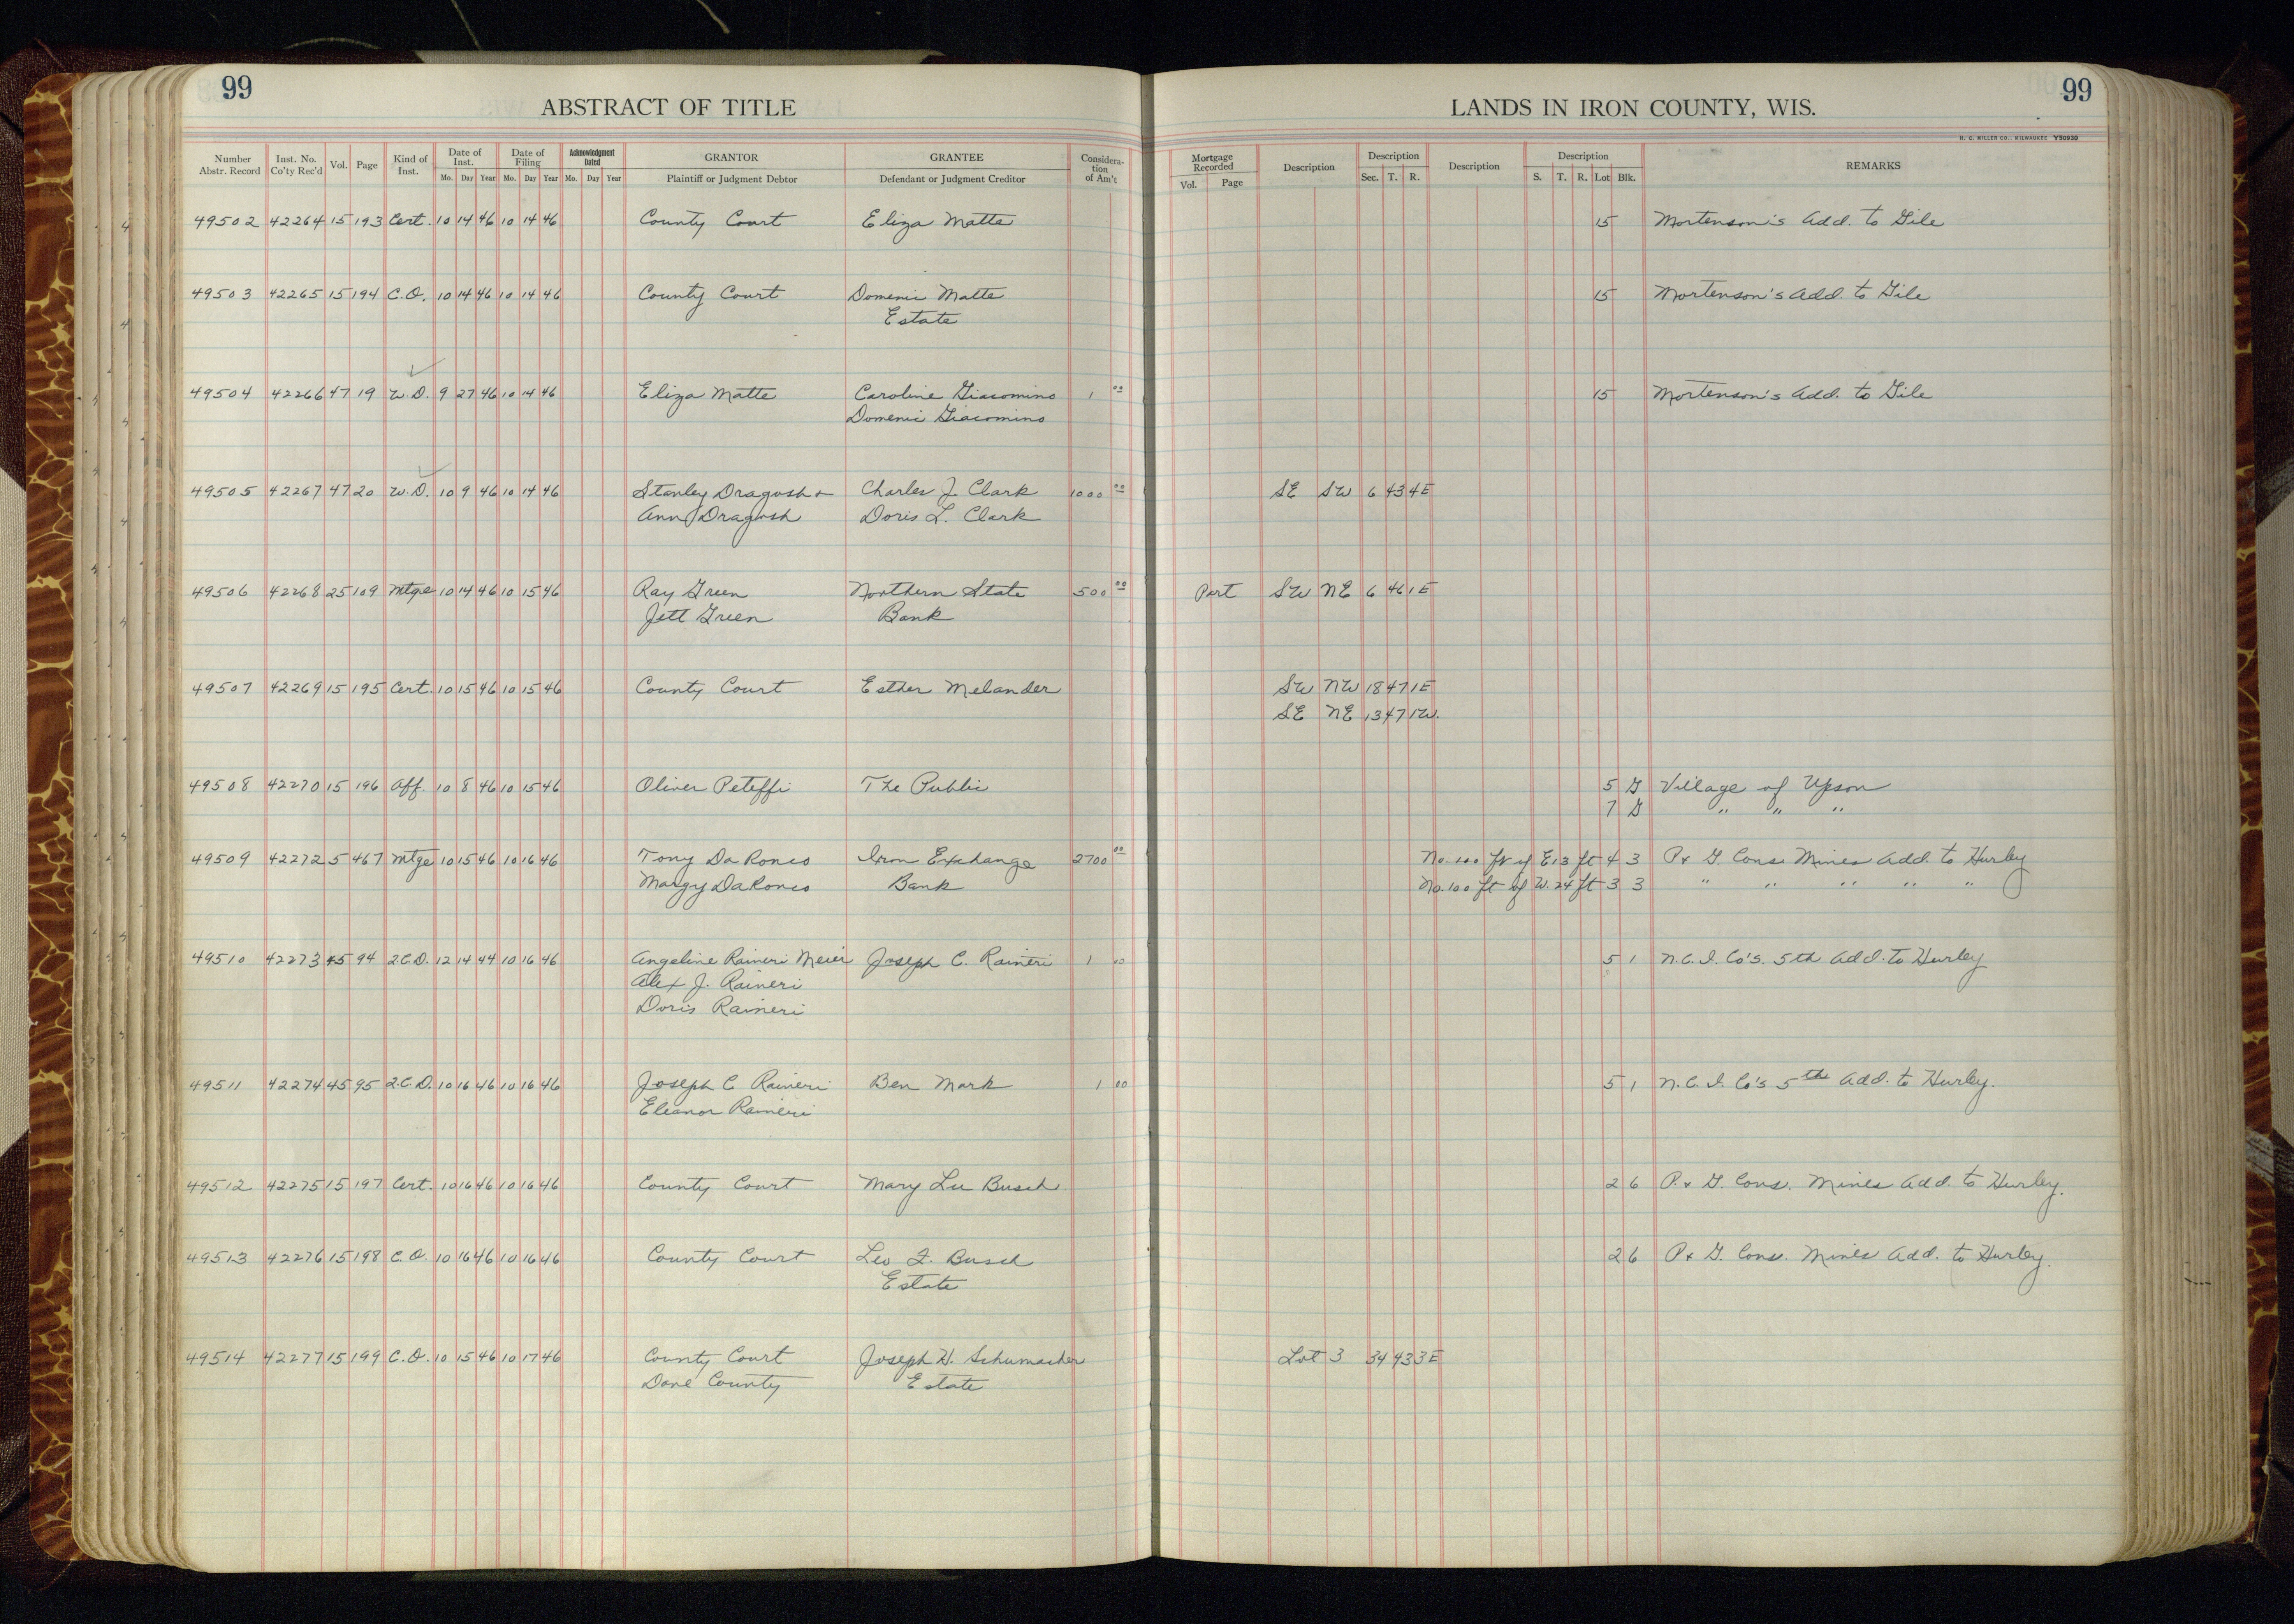 99
ABSTRACT OF TITLE
LANDS IN IRON COUNTY, WIS.
99
H. C. MILLER CO., MILWAUKEE Y50930
Number Abstr. Record | Inst. No. Co'ty Rec'd | Vol. | Page | Kind of Inst. | Date of Inst. Mo. Day Year | Date of Filing Mo. Day Year | Acknowledgment Dated Mo. Day Year | GRANTOR Plaintiff or Judgment Debtor | GRANTEE Defendant or Judgment Creditor | Consideration of Am't | Mortgage Recorded Vol. Page | Description | Description Sec. T. R. | Description | Description S. T. R. Lot Blk. | REMARKS
49502 42264 15 193 Cert. 10 14 46 10 14 46 County Court Eliza Matte 15 Mortenson's Add. to Gile
49503 42265 15 194 C.O. 10 14 46 10 14 46 County Court Domenic Matte 15 Mortenson's Add. to Gile
Estate
49504 42266 47 19 W.D. 9 27 46 10 14 46 Eliza Matte Caroline Giacomino 1 00 15 Mortenson's Add. to Gile
Domenic Giacomino
49505 42267 47 20 W.D. 10 9 46 10 14 46 Stanley Dragosh + Charles J. Clark 1000 00 SE SW 6 43 4E
Ann Dragosh Doris L. Clark
49506 42268 25 109 Mtge 10 14 46 10 15 46 Ray Green Northern State 500 00 Part SW NE 6 46 1E
Jett Green Bank
49507 42269 15 195 Cert. 10 15 46 10 15 46 County Court Esther Melander SW NW 18 47 1E
SE NE 13 47 1W.
49508 42270 15 196 Aff. 10 8 46 10 15 46 Oliver Peteffi The Public 5 G Village of Upson
7 G " " "
49509 42272 5 467 Mtge 10 15 46 10 16 46 Tony DaRonco Iron Exchange 2700 00 No. 100 ft of E 13 ft 4 3 P. + G. Cons. Mines Add. to Hurley
Margy DaRonco Bank No. 100 ft of W. 24 ft 3 3 " " " " "
49510 42273 45 94 2.C.D. 12 14 44 10 16 46 Angeline Raineri Meier Joseph C. Raineri 1 00 5 1 N.C.I. Co's. 5th Add. to Hurley
Alex J. Raineri
Doris Raineri
49511 42274 45 95 2.C.D. 10 16 46 10 16 46 Joseph C Raineri Ben Mark 1 00 5 1 N.C.I. Co's 5th Add. to Hurley.
Eleanor Raineri
49512 42275 15 197 Cert. 10 16 46 10 16 46 County Court Mary Lee Busch 2 6 P. + G. Cons. Mines Add. to Hurley.
49513 42276 15 198 C.O. 10 16 46 10 16 46 County Court Leo F. Busch 2 6 P. + G. Cons. Mines Add. to Hurley.
Estate
49514 42277 15 199 C.O. 10 15 46 10 17 46 County Court Joseph H. Schumacher Lot 3 34 43 3E
Dane County Estate